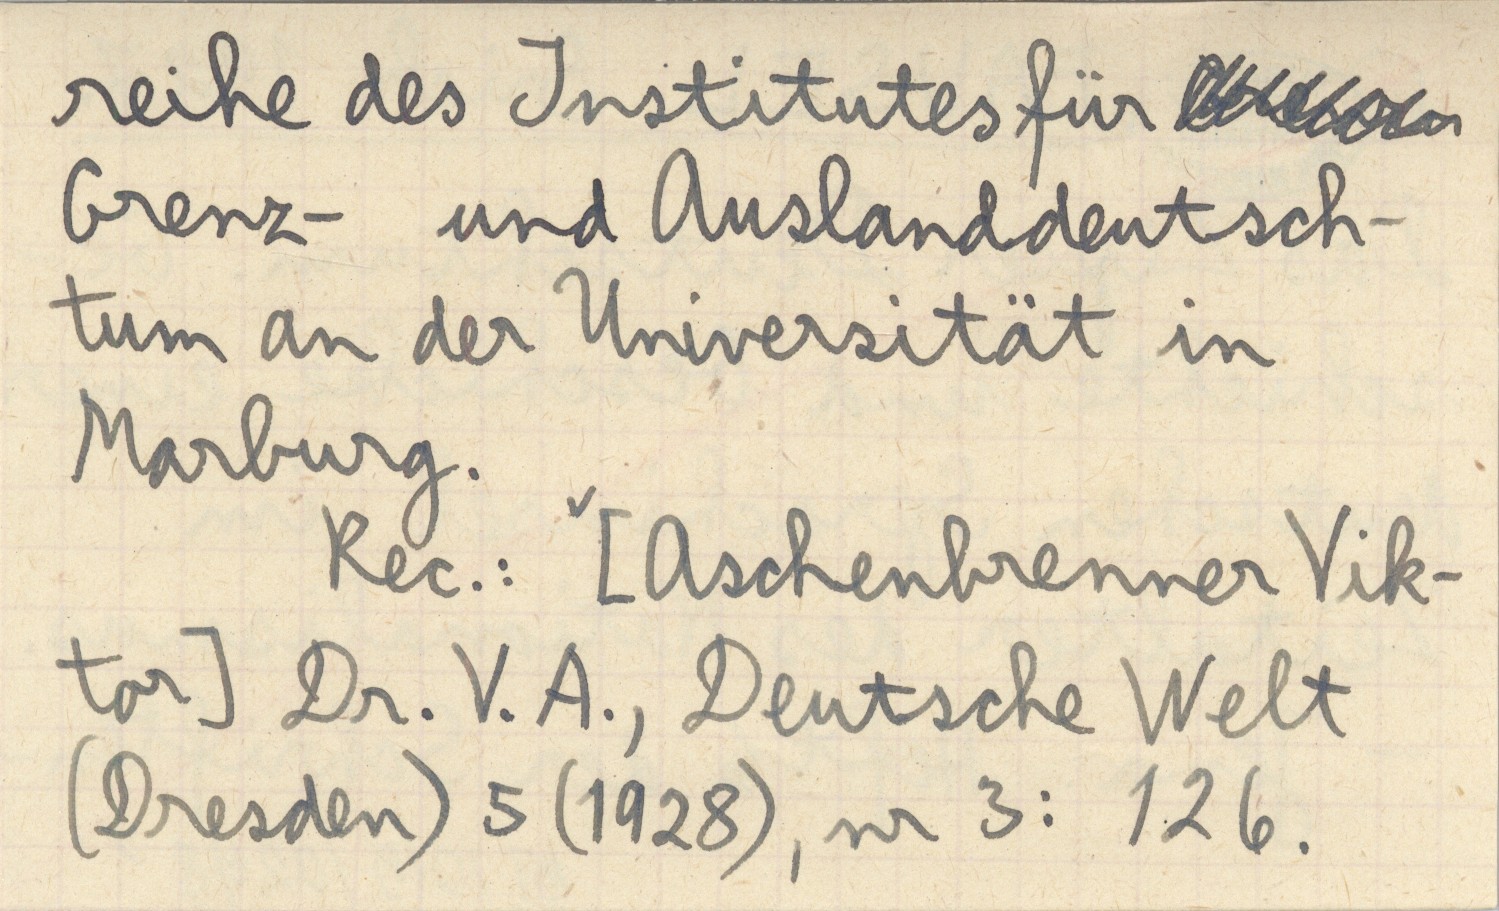 reihe des Institutes für
Grenz- und Auslanddeutsch-
tum an der Universität in
Marburg.
Rec.: ✓[Aschenbrenner Vik-
tor] Dr. V. A., Deutsche Welt
(Dresden) 5 (1928), nr 3: 126.